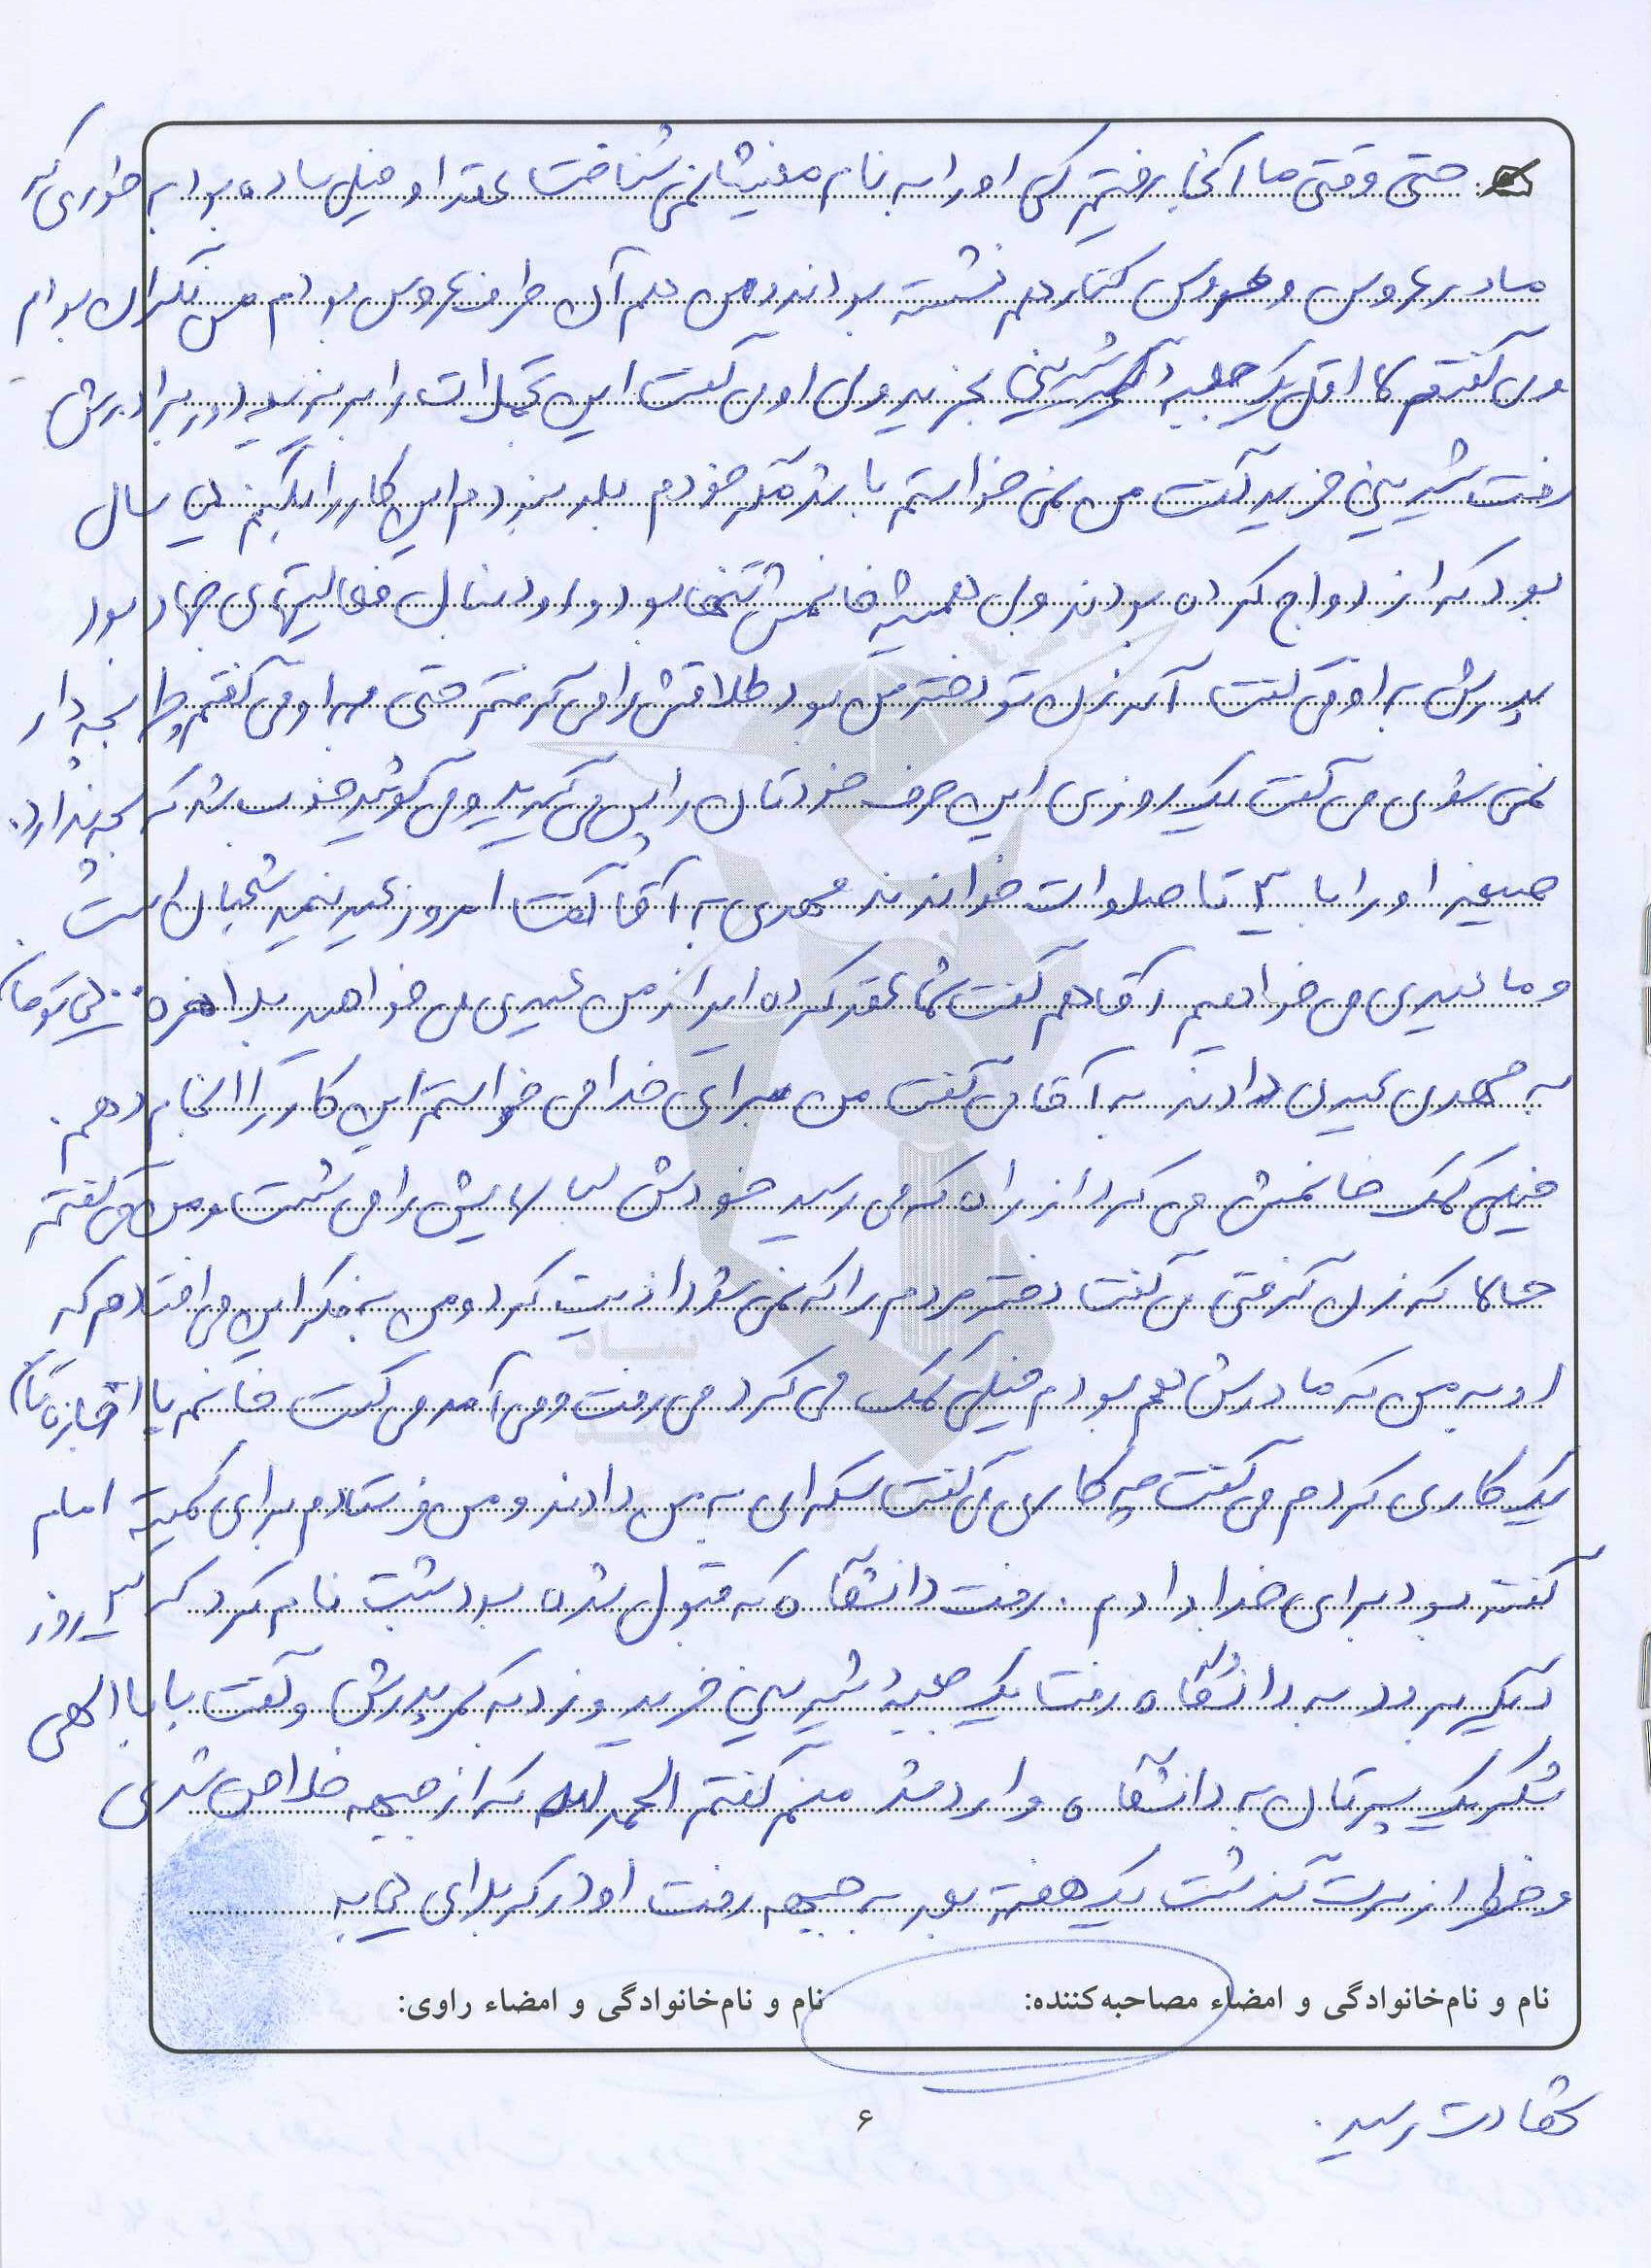 حتی وقتی ما آنجا رفتیم کسی او را به نام مغنیشان نمی شناخت عقد او خیلی ساده بود به طوری که
مادر عروس و عروس کنار هم نشسته بودند و من هم آن طرف عروس بودم من نگران بودم
می گفتم لااقل یک جعبه شیرینی بخرید ولی او می گفت این تجملات را بریزید دور برادرش
رفت شیرینی خرید گفت من نمی خواستم باشد مگر خودم بلد نبودم این کار را بکنم یک سال
بود که ازدواج کرده بودند ولی همیشه خانمش تنها بود و او دنبال فعالیتهای جهاد بود
پدرش به او می گفت اگر زن تو دختر من بود طلاقش را می گرفتم حتی به او می گفتم چرا بچه دار
نمی شوی می گفت یک روزی این حرف خودتان را پس می گیرید و می گوئید خوب شد که بچه ندارد.
صیغه او را با ۳ تا صلوات خواندند مهدی به آقا گفت امروز عید نیمه شعبان است
و ما عیدی می خواهیم آقا هم گفت شما عقد کرده اید از من عیدی می خواهید بالاخره تومان
به مهدی عیدی دادند به آقا می گفت من برای خدا می خواستم این کار را انجام دهم.
خیلی کمک خانمش می کرد از راه که می رسید خودش لباسهایش را می شست و من می گفتم
حالا که زن گرفتی می گفت دختر مردم را که نمی شود اذیت کرد و من به فکر این می افتادم که
او به من که مادرش هم بودم خیلی کمک می کرد می رفت و می آمد می گفت خانم با اجازه تان
یک کاری کردم می گفت چه کاری می گفت سکه ای به من دادند و من فرستادم برای کمیته امام
گفته بود برای خدا دادم . رفت دانشگاه که قبول شده بود ثبت نام کرد که ۳ روز
دیگر برود به دانشگاه رفت یک جعبه شیرینی خرید و زد به کمر پدرش و گفت بابا الهی
شکر یک پسرتان به دانشگاه وارد شد منم گفتم الحمد لله که از جبهه خلاص شدی
و خطر از سرت گذشت یک هفته بعد به جبهه رفت او در کربلای به
نام و نام‌خانوادگی و امضاء مصاحبه‌کننده:
نام و نام‌خانوادگی و امضاء راوی:
شهادت رسید.
۶